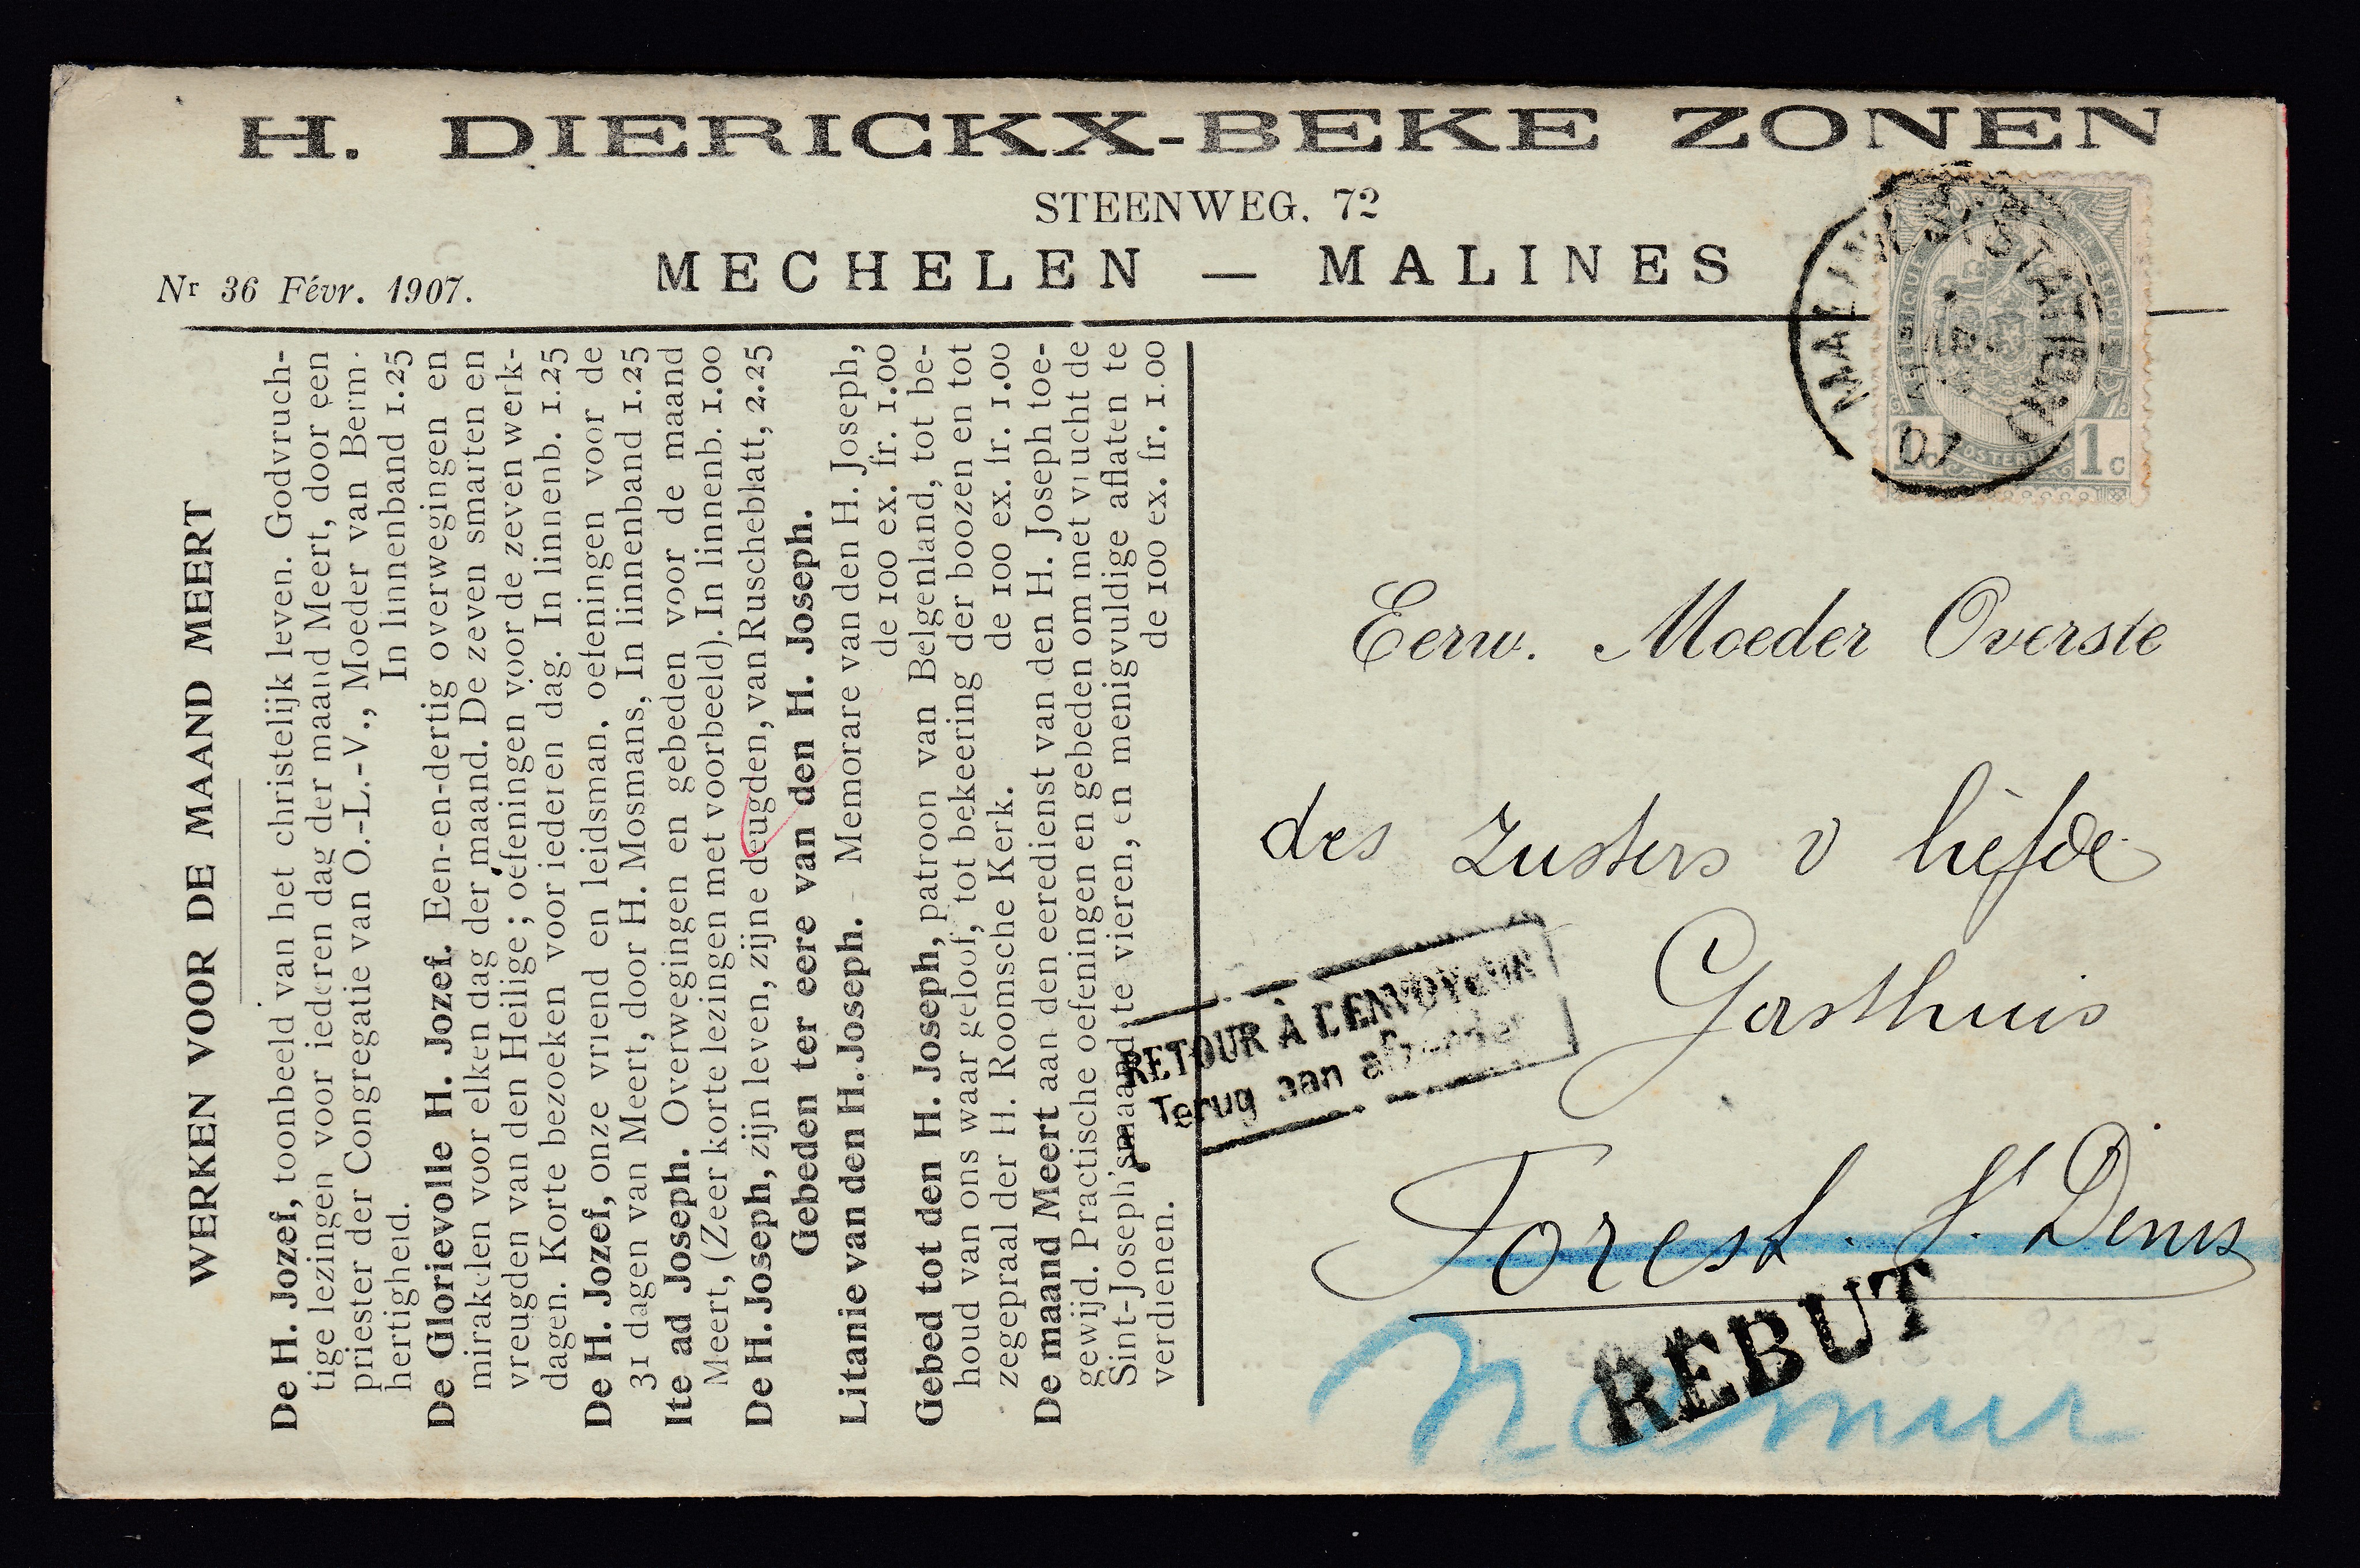 H. DIERICKX-BEKE ZONEN
STEENWEG, 72
Nr 36 Févr. 1907.
MECHELEN — MALINES
WERKEN VOOR DE MAAND MEERT
De H. Jozef, toonbeeld van het christelijk leven. Godvruch-
tige lezingen voor iederen dag der maand Meert, door een
priester der Congregatie van O.-L.-V., Moeder van Berm.
hertigheid. In linnenband 1.25
De Glorievolle H. Jozef. Een-en-dertig overwegingen en
mirakelen voor elken dag der maand. De zeven smarten en
vreugden van den Heilige; oefeningen voor de zeven werk-
dagen. Korte bezoeken voor iederen dag. In linnenb. 1.25
De H. Jozef, onze vriend en leidsman, oefeningen voor de
31 dagen van Meert, door H. Mosmans, In linnenband 1.25
Ite ad Joseph. Overwegingen en gebeden voor de maand
Meert, (Zeer korte lezingen met voorbeeld). In linnenb. 1.00
De H. Joseph, zijn leven, zijne deugden, van Ruscheblatt, 2.25
Gebeden ter eere van den H. Joseph.
Litanie van den H. Joseph. - Memorare van den H. Joseph,
de 100 ex. fr. 1.00
Gebed tot den H. Joseph, patroon van Belgenland, tot be-
houd van ons waar geloof, tot bekeering der boozen en tot
zegepraal der H. Roomsche Kerk. de 100 ex. fr. 1.00
De maand Meert aan den eeredienst van den H. Joseph toe-
gewijd. Practische oefeningen en gebeden om met vrucht de
Sint-Joseph'smaand te vieren, en menigvuldige aflaten te
verdienen. de 100 ex. fr. 1.00
MALINES (STATION)
07
1c 1c
Eerw. Moeder Overste
des Zusters v liefde
Gasthuis
RETOUR À L'ENVOYEUR
Terug aan afzender
Forest. St Denis
REBUT
Namur